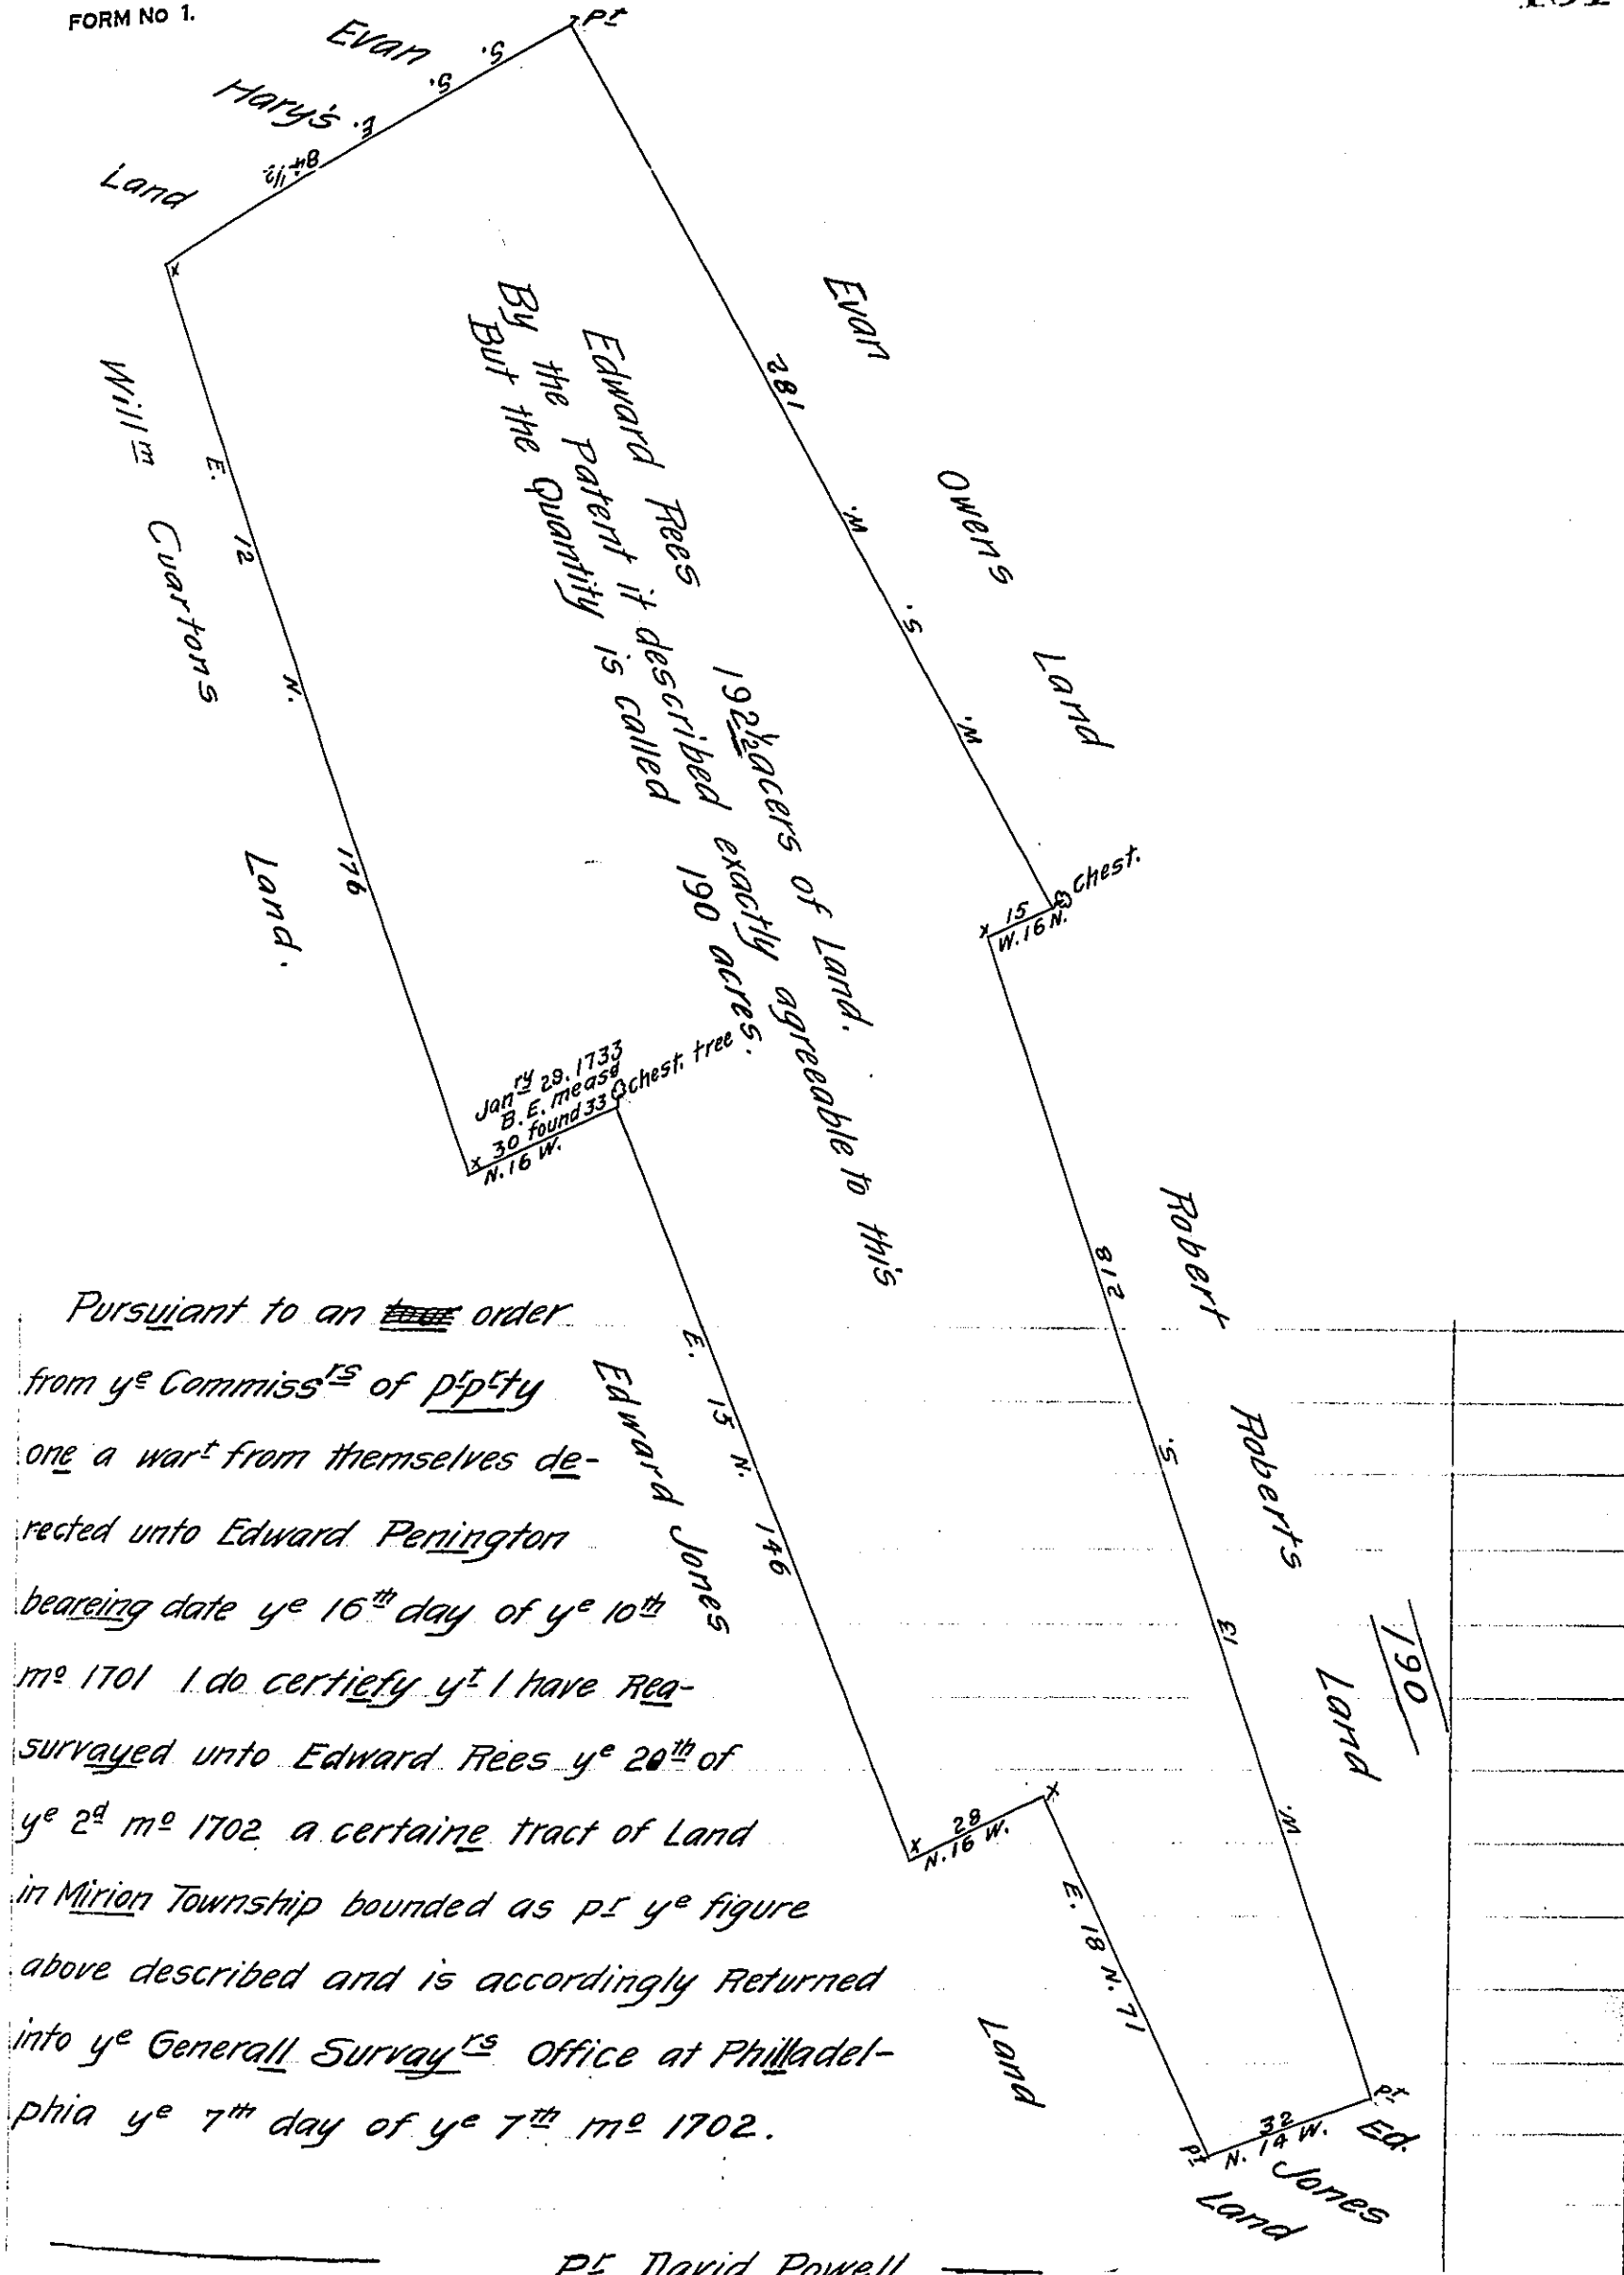 FORM No 1.
Pt
Evan
Hary's
Land
S.
S.
E.
84 1/2
Evan Owens Land
281
W.
S.
W.
Edward Rees 192 1/2 acers of Land.
By the Patent it described exactly agreeable to this
But the Quantity is called 190 acres.
Willm Cuartons Land.
E. 12 N. 176
chest.
15
W. 16 N.
Janry 29. 1733
B. E. measd
30 found 33
chest. tree
N. 16 W.
Robert Roberts Land
218
S.
13
W.
190
Edward Jones Land
E. 15 N. 146
28
N. 16 W.
E. 18 N. 71
Pt
32
N. 14 W.
Pt
Ed.
Jones
Land
Pursuiant to an order
from ye Commissrs of prprty
one a wart from themselves de-
rected unto Edward Penington
beareing date ye 16th day of ye 10th
mo 1701 I do certiefy yt I have Rea-
survayed unto Edward Rees ye 20th of
ye 2d mo 1702 a certaine tract of Land
in Mirion Township bounded as pr ye figure
above described and is accordingly Returned
into ye Generall Survayrs Office at Philladel-
phia ye 7th day of ye 7th mo 1702.
Pr David Powell